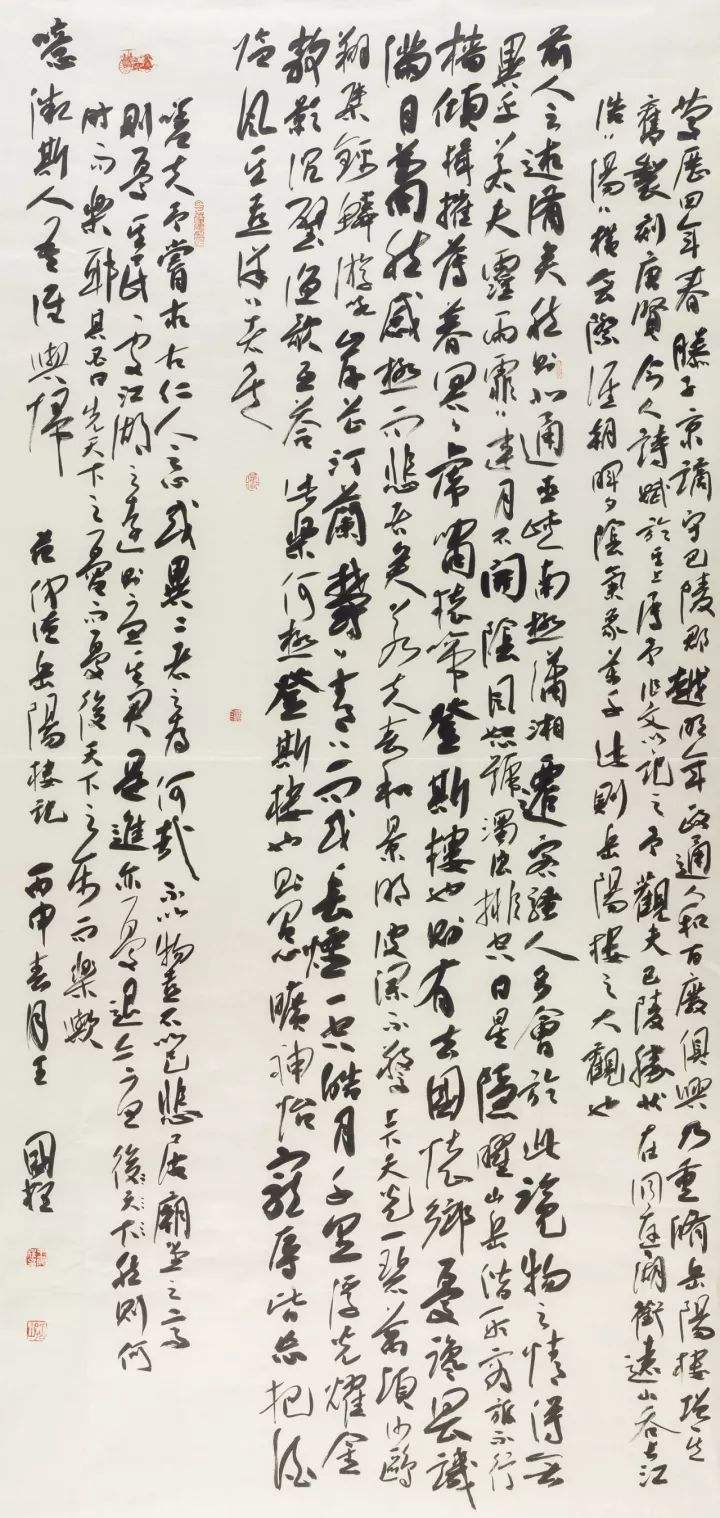 慶歷四年春滕子京謫守巴陵郡越明年政通人和百廢俱興乃重脩岳陽樓增其
舊製刻唐賢今人詩賦於其上屬予作文以記之予觀夫巴陵勝狀在洞庭湖銜遠山吞長江
浩〻湯〻橫無際涯朝暉夕陰氣象萬千此則岳陽樓之大觀也
前人之述備矣然則北通巫峽南極瀟湘遷客騷人多會於此覽物之情得無
異乎若夫霪雨霏〻連月不開陰風怒號濁浪排空日星隱曜山岳潛形商旅不行
檣傾楫摧薄暮冥〻虎嘯猿啼登斯樓也則有去國懷鄉憂讒畏譏
滿目蕭然感極而悲者矣若夫春和景明波瀾不驚上下天光一碧萬頃沙鷗
翔集錦鱗游泳岸芷汀蘭鬱〻青〻而或長煙一空皓月千里浮光耀金
靜影沉璧漁歌互答此樂何極登斯樓也則有心曠神怡寵辱皆忘把酒
臨風其喜洋〻者矣
嗟夫予嘗求古仁人之心或異二者之為何哉不以物喜不以己悲居廟堂之高
則憂其民處江湖之遠則憂其君是進亦憂退亦憂後天下然則何
時而樂耶其必曰先天下之憂而憂後天下之樂而樂歟
噫微斯人吾誰與歸 范仲淹岳陽樓記 丙申春月王國